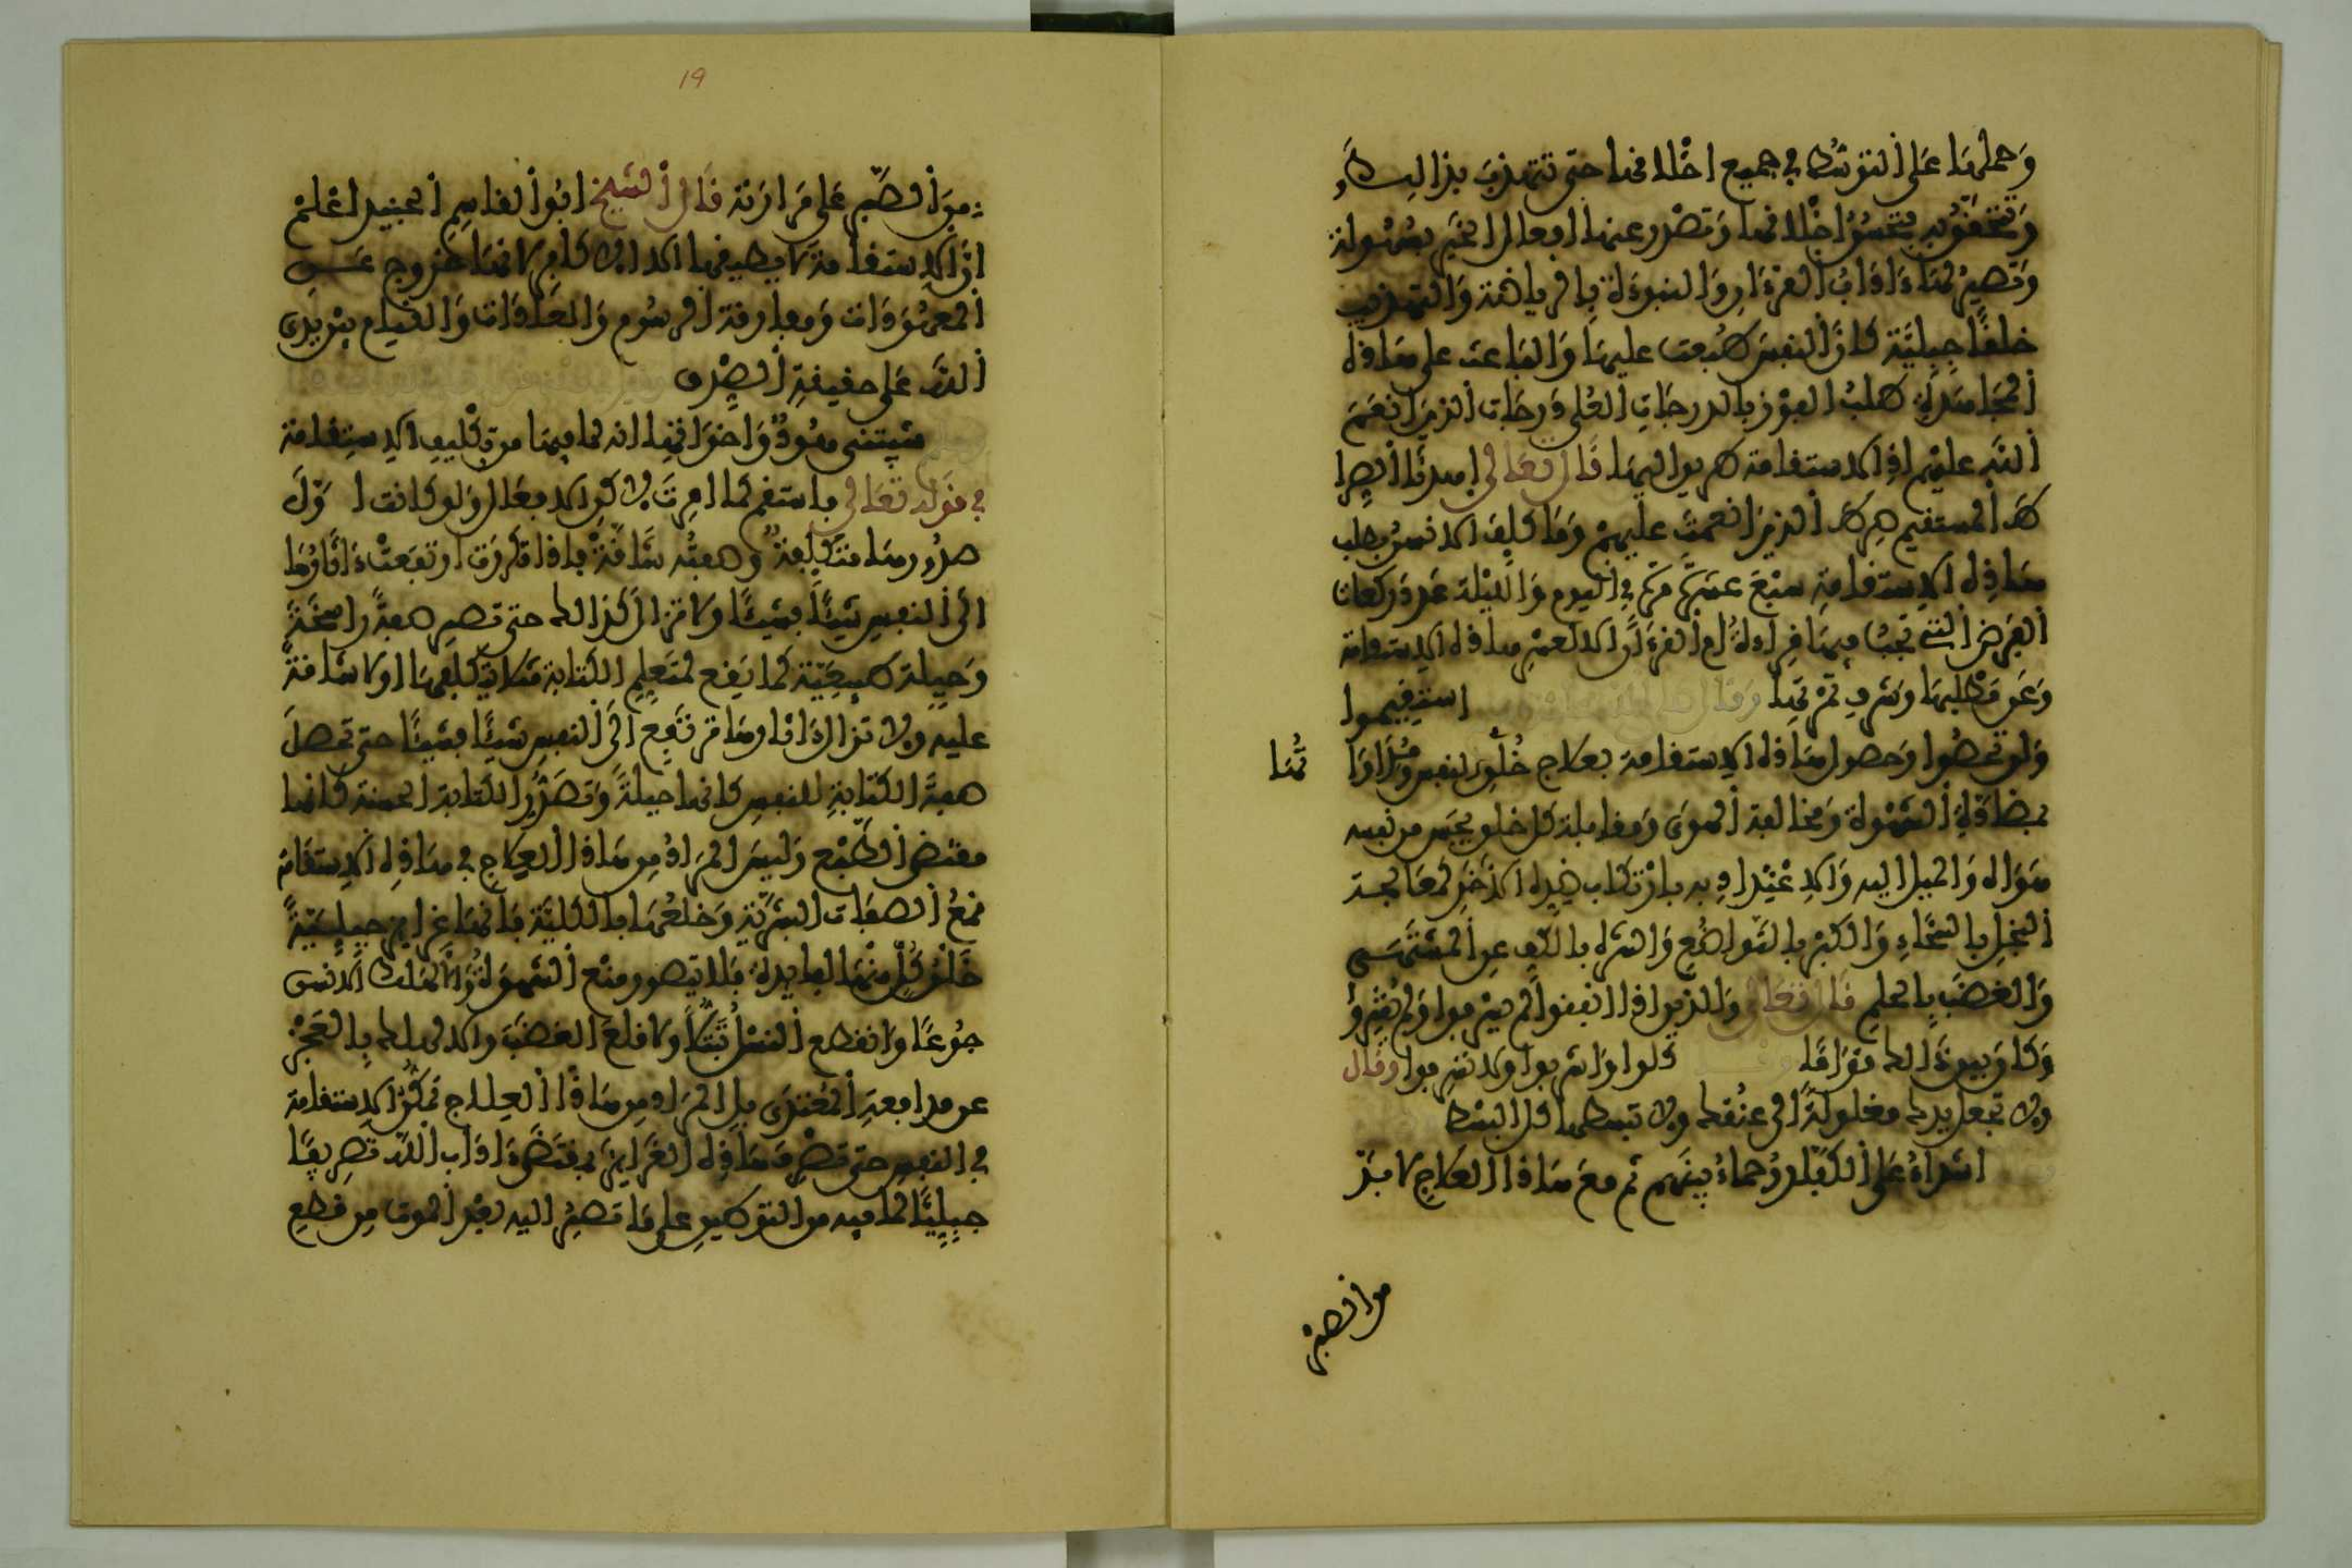 وَحملها عَلى التوسّط في جميع اخْلا فها حتى تتهذبَ بذالك
وَتتخفّق به فتحسُن اخْلا فها وَتصْدر عنها ا فعال الخَير بسُهُولة
وَتصيرُ لها ءَادَابُ الفرءَان وَالنبوءَة بالرياضة وَالتهذيب
خلفًا جِبِليَّة كانَّ النفسَ طُبعت عليها وَالباعث على هَاذه
المجَاهدَة طلبُ الفوْز بالدرجَاتِ العُلى دَرجَات الذينَ انعَمَ
اللهُ عليْهم اذ الاستفامة طريق اليها قَال تعَالى اهدنَا الصِرا
طَ المستفيم صِرَاطَ الذينَ انعَمتَ عليهمْ وَمَا كلِّفَ الانسُ بطلب
هَاذِه الاستفامة سبْعَ عشرَة مرَّة في اليوم وَاللَّيْلة عَدَدَ ركعات
الفرْض التي تجبُ فيها فرَاءَةُ أمِّ الفرءَان الا لعسْرِ هاذه الاستفامة
وَعزّ مَطلبها وَشرفِ ثمْرَتِها وَقال استفيموا
وَلن تحصُوا وَحصول هَاذه الاستفامة بعلاج خُلُق النفس وَمُدَاوَاتُها
بمضَادَّة الشهْوة وَمخالفة الهوَى وَمفابلة كل خلق يحسّ من نفسه
هَوَاه وَالميل اليه وَالاعْتِدَاد به بارْتكاب ضِدّه الاخَر كمعَالجة
البخلِ بالسّخَاءِ وَالكبْر بالتّواضُع وَالشره بالكفِّ عن المشتَهَى
وَالغضَب بالحلمِ قَال تعَالى وَالذينَ اذا انفقوا لم يسْرفوا وَلم يفتِرُوا
وَكان بين ذَالك قوَامًا كلوا وَاشربوا ولا تسرفوا وقال
ولا تجعل يدك مغلولةً الى عنُقك ولا تبسطها كل البسْط
اشدّاءُ عَلى الكفّار رُحماءُ بينَهم ثم معَ هَاذا العلاج لا بدّ
من الصبْر
19
منَ الصَّبر على مرَارَتهِ قَال الشيخ ابُوا القاسِم الجنيد اعْلمْ
انّ الاستفامة لا يطيفها الا الاكابر لانهَا خروج عَن
المعهُودَات وَمفارفة الرسُوم وَالعَادَات وَالقيام بيْن يدَي
اللهِ على حفيفةِ الصِّدق
شيبتني هُودٌ وَاخوَاتها انه لما فيها من تكْليف الاستفامة
في قولهِ تعَالى فاستفم كما امرتَ لاكن الافعَال وَلو كانت اوّلَ
صدُورهَا متكلّفةً وصعبةً شَاقّةً فاذا تكرّرَت ارتفعَتْ ءَاثارُهَا
الى النفسِ شيئًا فشيئًا ولا تزالُ كذالك حتى تصير صفةً راسخَةً
وَجبلة طبيعيّة كما يَقع لمتعَلِّم الكتابة مثلا يتكلفها اولا شاقةً
عليه ولا تزال ءَاثارهَا ترتفع الى النفس شيئًا فشيئًا حتى تحصلَ
صفةُ الكتابةِ للنفسِ كانها جبلةً وَتصْدُر الكتابة الحسنة كانها
مقتضى الطبْع وَليسَ المرَادُ من هَاذا العِلاجِ في هَاذِه الاستفَامة
قمْعُ الصفَات البشرِيّة وَخلعُهَا بالكلّيّة فانهَا غرايز جِبِليّةً
خلق كلٌّ منْها لفايدة فلا يتصور منْع الشهوَةِ وَالا هلك الانسُ
جُوعًا وَانقطع النسْلُ تبتّلًا ولا قلعَ الغضَب والا لهلك بالعَجْز
عن مدافعةِ المُعْتدى بل المرَاد من هَاذَا العِلاج تمَكُّن الاستفامة
في النفسِ حتى تصْرفَ هَاذه الغرَايزَ بمقتضى ءَادَابِ اللّه تصريفًا
جِبِليّا لما فيه من التوطينِ على مَا تصيرُ اليه بعْدَ الموت من قطعِ